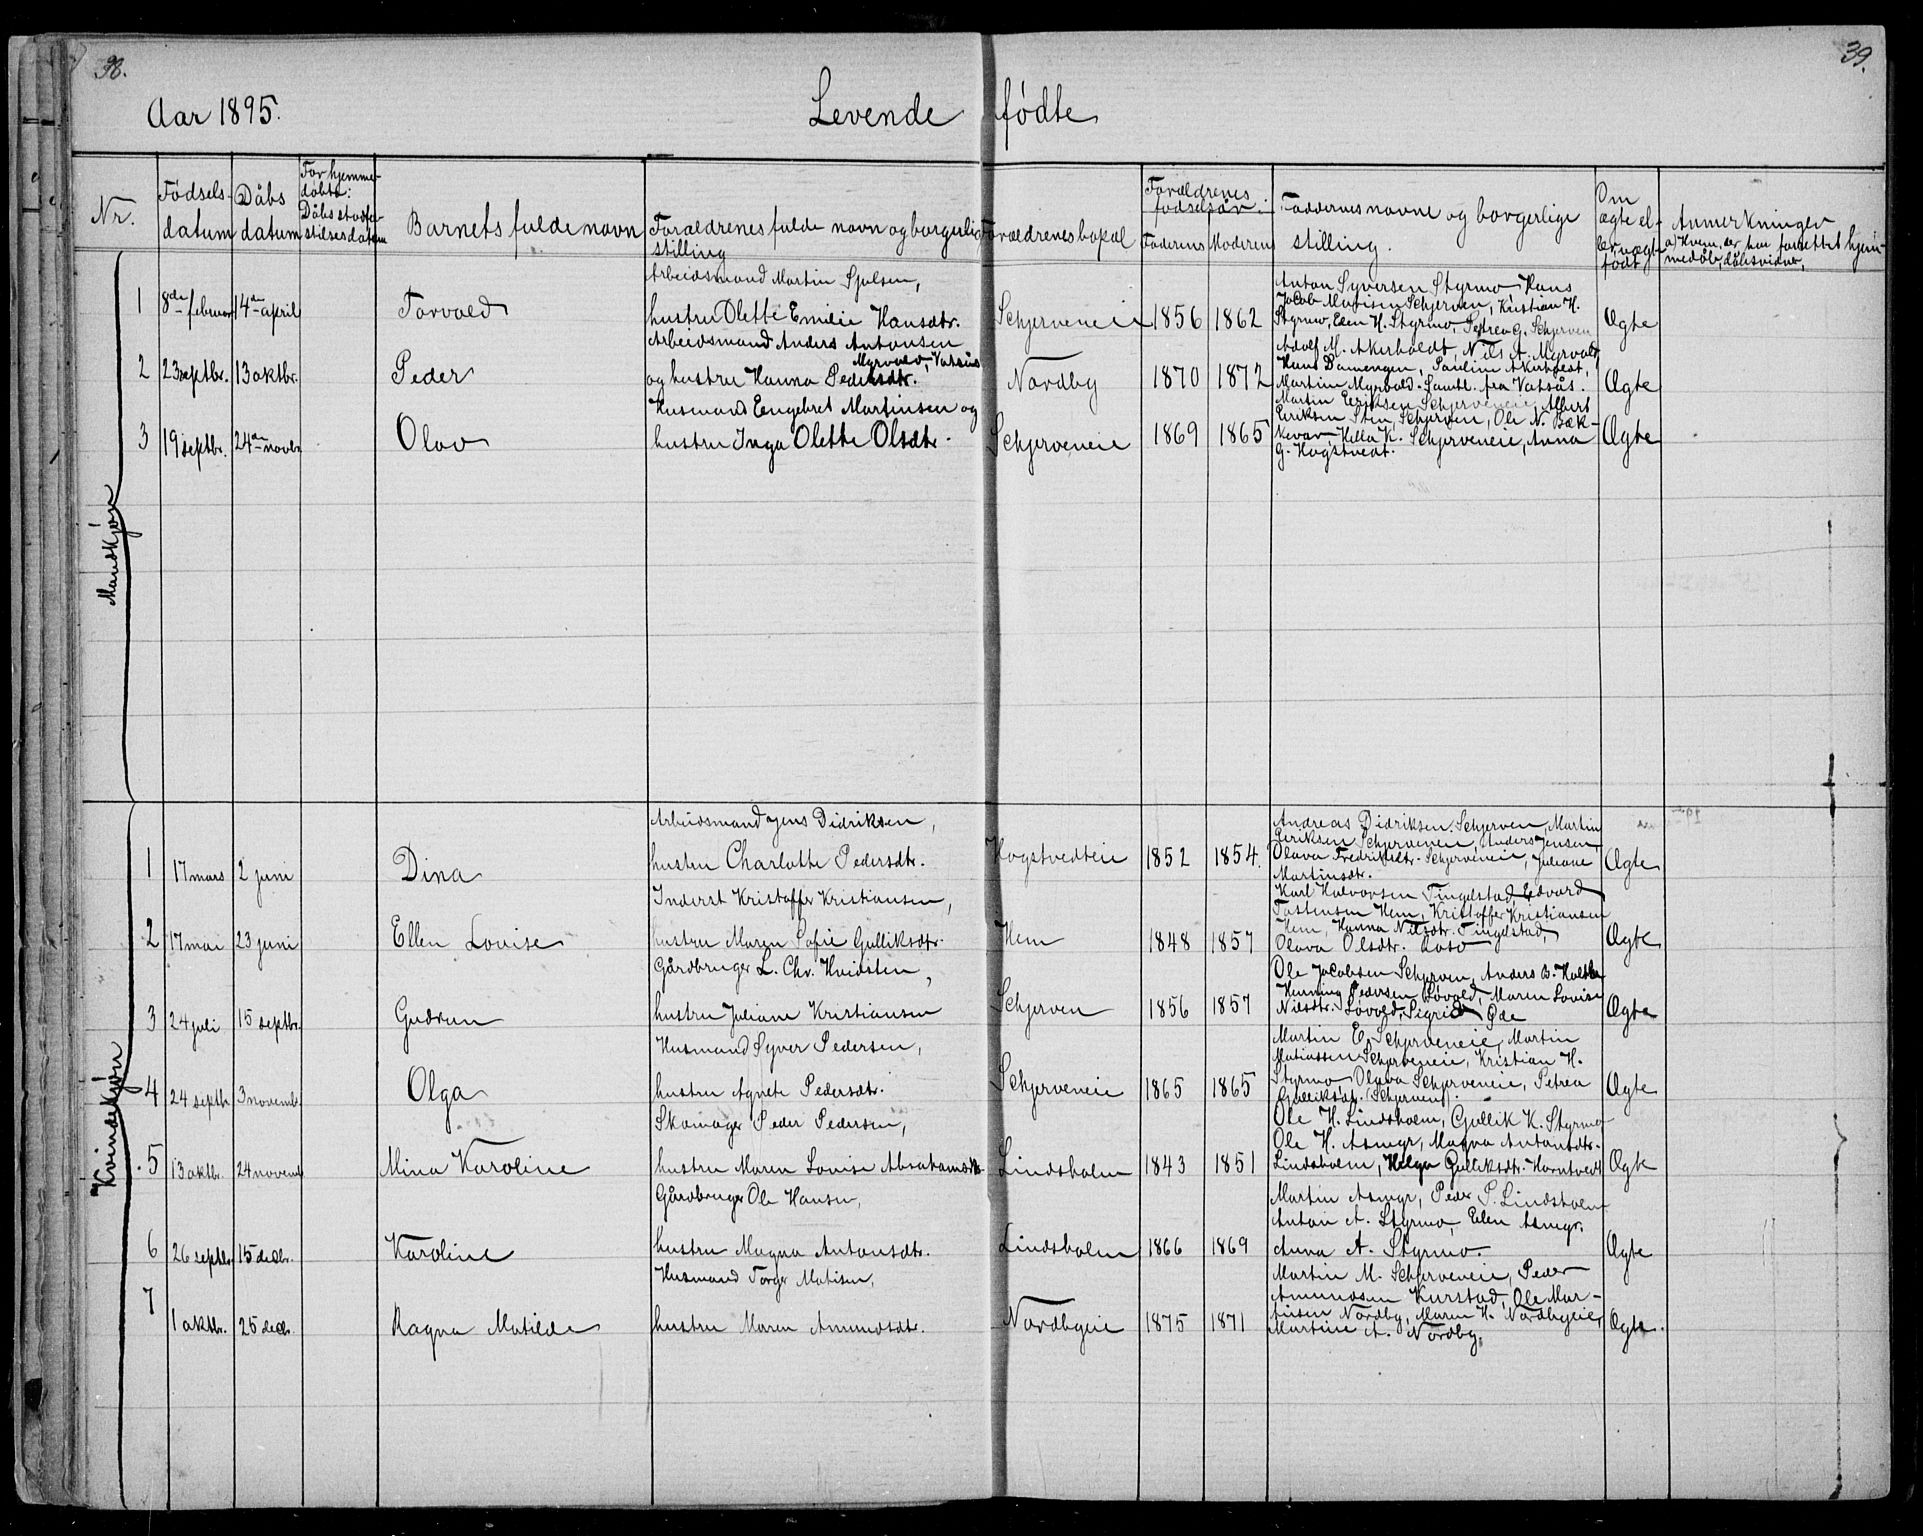 38.
39.
Aar 1895.
Levende fødte
Nr.
Fødsels-
datum
Dåbs
datum
For hjemme-
døbte:
Dåbsstadfæ-
stelsesdatum
Barnets fulde navn
Forældrenes fulde navn og borgerlig
stilling
Forældrenes bopæl
Forældrenes
fødselsår.
Faderens
Moderens
Faddernes navne og borgerlige
stilling.
Om
ægte el-
ler uægte
født
Anmerkninger
a) Hvem, der har forrettet hjem-
medåb, dåbsvidner,
Mandkjøn
1 8de februar 14de april Torvald
Arbeidsmand Martin Sjulsen,
hustru Olette Emilie Hansdtr.
Schjerveneie 1856 1862
Anton Syversen Styrmo Hans
Jacob Matisen Schjerven, Kristian H.
Styrmo, Elen H. Styrmo, Petrea G. Schjerven
Ægte
2 23 septbr. 13 oktbr. Peder
Arbeidsmand Anders Antonsen
Myrvold, Vatsås
og hustru Hanna Pedersdtr.
Nordby 1870 1872
Adolf M. Akerholdt, Nils A. Myrvold,
Hans Damengen, Pauline Akerholdt,
Martin Myrvold. Samtl. fra Vatsås.
Ægte
3 19 septbr. 24de novbr. Olav
Husmand Engebret Martinsen og
hustru Inga Olette Olsdtr.
Schjerveneie 1869 1865
Martin Eriksen Schjerveneie, Albert
Eriksen Sten Schjerven, Ole N. Bæk-
kevar, Hella K. Schjerveneie, Anna
G. Hogstvedt.
Ægte
Kvindekjøn
1 17 mars 2 juni Dina
Arbeidsmand Jens Didriksen,
hustru Charlotte Pedersdtr.
Hogstvedteie 1852 1854.
Andreas Didriksen Schjerven, Martin
Eriksen Schjerveneie, Anders Jensen,
Olava Fredriksdtr. Schjerveneie, Juliane
Martinsdtr.
Ægte
2 17 mai 23 juni Ellen Lovise
Inderst Kristoffer Kristiansen,
hustru Maren Sofie Gulliksdtr.
Hem 1848 1857
Karl Halvorsen Tingelstad, Edvard
Tostensen Hem, Kristoffer Kristiansen
Hem, Hanna Nilsdtr. Tingelstad,
Olava Olsdtr.
Ægte
3 24 juli 15 septbr. Gudrun
Gårdbruger L. Chr. Hvidsten,
hustru Juliane Kristiansen
Schjerven 1856 1857
Ole Jacobsen Schjerven, Anders B.
Henning Pedersen Løvold, Maren Lovise
Nilsdtr. Løvold, Sigrid Øde
Ægte
4 24 septbr 3 novemb. Olga
Husmand Syver Pedersen,
hustru Agnete Pedersdtr.
Schjerveneie 1865 1865
Martin E. Schjerveneie, Martin
Matiassen Schjerveneie, Kristian H.
Styrmo, Olava Schjerveneie, Petrea
Gulliksdtr. (Schjerven).
Ægte
5 13 oktbr. 24 novemb Mina Karoline
Skomager Peder Pedersen,
hustru Maren Lovise Abrahamsdtr.
Lindsholm 1843 1851
Ole H. Lindsholm, Gullik K. Styrmo
Ole H. Asmyr, Magna Antonsdtr.
Lindsholm, Helga Gulliksdtr. Horntvedt
Ægte
6 26 septbr. 15 decbr. Karoline
Gårdbruger Ole Hansen,
hustru Magna Antonsdtr.
Lindsholm 1866 1869
Martin Asmyr, Peder P. Lindsholm
Anton A. Styrmo, Elen Asmyr,
Anna A. Styrmo.
Ægte
7 1 oktbr. 25 decbr. Ragna Matilde
Husmand Torger Matisen,
hustru Maren Amundsdtr.
Nordbyeie 1875 1871
Martin M. Schjerveneie, Peder
Amundsen Kurstad, Ole Mar-
tinsen Nordby, Maren H. Nordbyeie,
Martine A. Nordby.
Ægte.